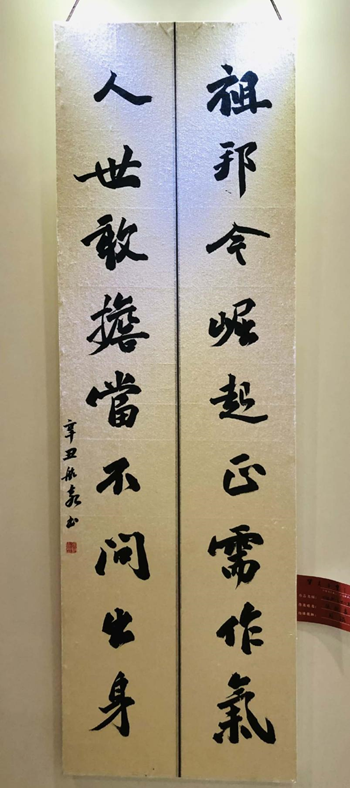 祖邦今崛起正需作氣
人世敢擔當不問出身
辛丑